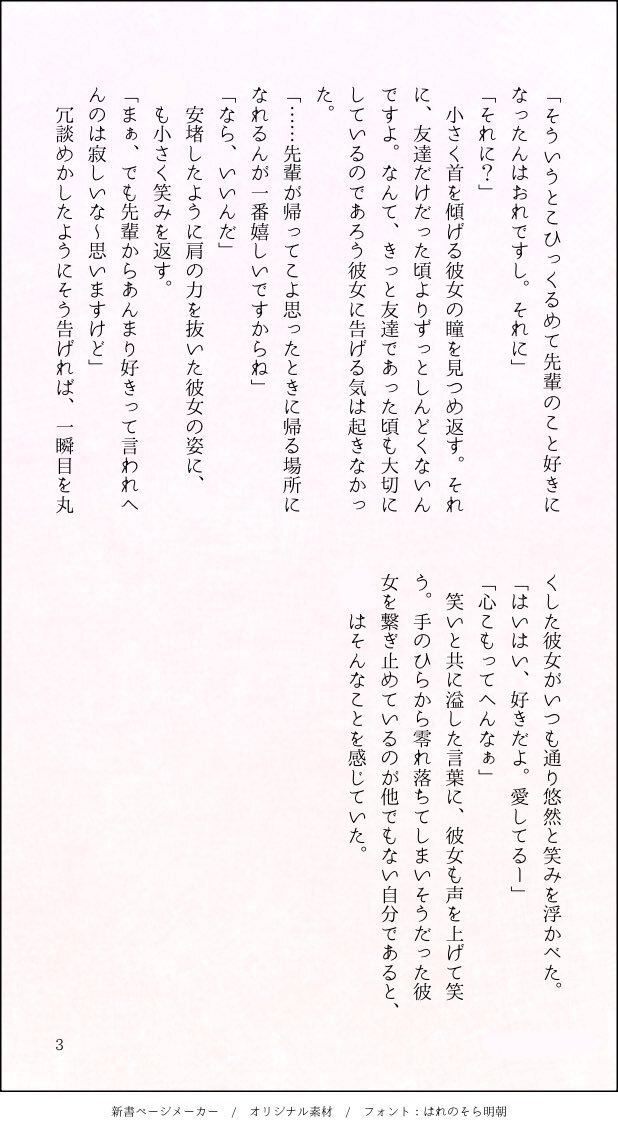 「そういうとこひっくるめて先輩のこと好きに
なったんはおれですし。それに」
「それに？」
小さく首を傾げる彼女の瞳を見つめ返す。それ
に、友達だけだった頃よりずっとしんどくないん
ですよ。なんて、きっと友達であった頃も大切に
しているのであろう彼女に告げる気は起きなかっ
た。
「……先輩が帰ってこよ思ったときに帰る場所に
なれるんが一番嬉しいですからね」
「なら、いいんだ」
安堵したように肩の力を抜いた彼女の姿に、
も小さく笑みを返す。
「まぁ、でも先輩からあんまり好きって言われへ
んのは寂しいな～思いますけど」
冗談めかしたようにそう告げれば、一瞬目を丸
くした彼女がいつも通り悠然と笑みを浮かべた。
「はいはい、好きだよ。愛してるー」
「心こもってへんなぁ」
笑いと共に溢した言葉に、彼女も声を上げて笑
う。手のひらから零れ落ちてしまいそうだった彼
女を繋ぎ止めているのが他でもない自分であると、
はそんなことを感じていた。
3
新書ページメーカー / オリジナル素材 / フォント：はれのそら明朝